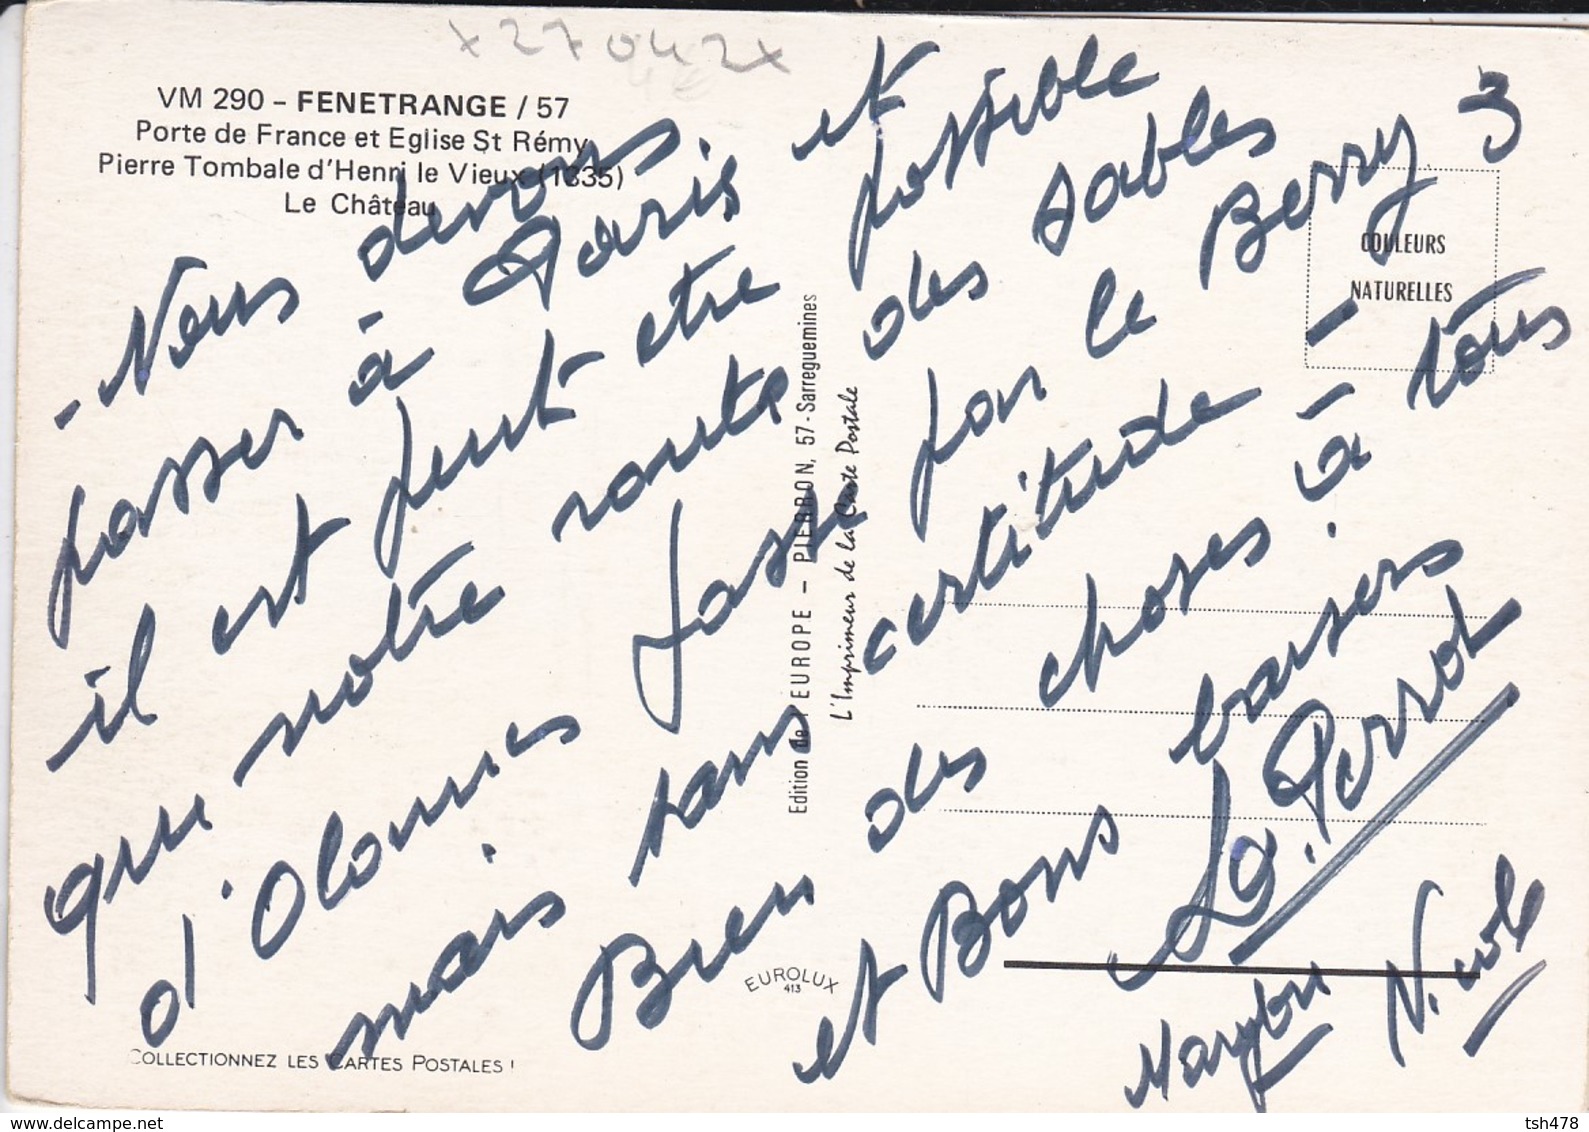 x 27042x
4€
VM 290 - FENETRANGE / 57
Porte de France et Eglise St Rémy
Pierre Tombale d'Henri le Vieux (1335)
Le Château
3
- Nous devons
passer à Paris et
il est peut etre possible
que notre route des sables
d'Olonnes passe par le Berry -
mais sans certitude -
Bien des choses à tous
et Bons baisers.
G. Perrot
Nicole
Edition de l'EUROPE - PIERRON, 57 - Sarreguemines
L'Imprimeur de la Carte Postale
COULEURS
NATURELLES
EUROLUX
413
COLLECTIONNEZ LES CARTES POSTALES !
www.delcampe.net
tsh478